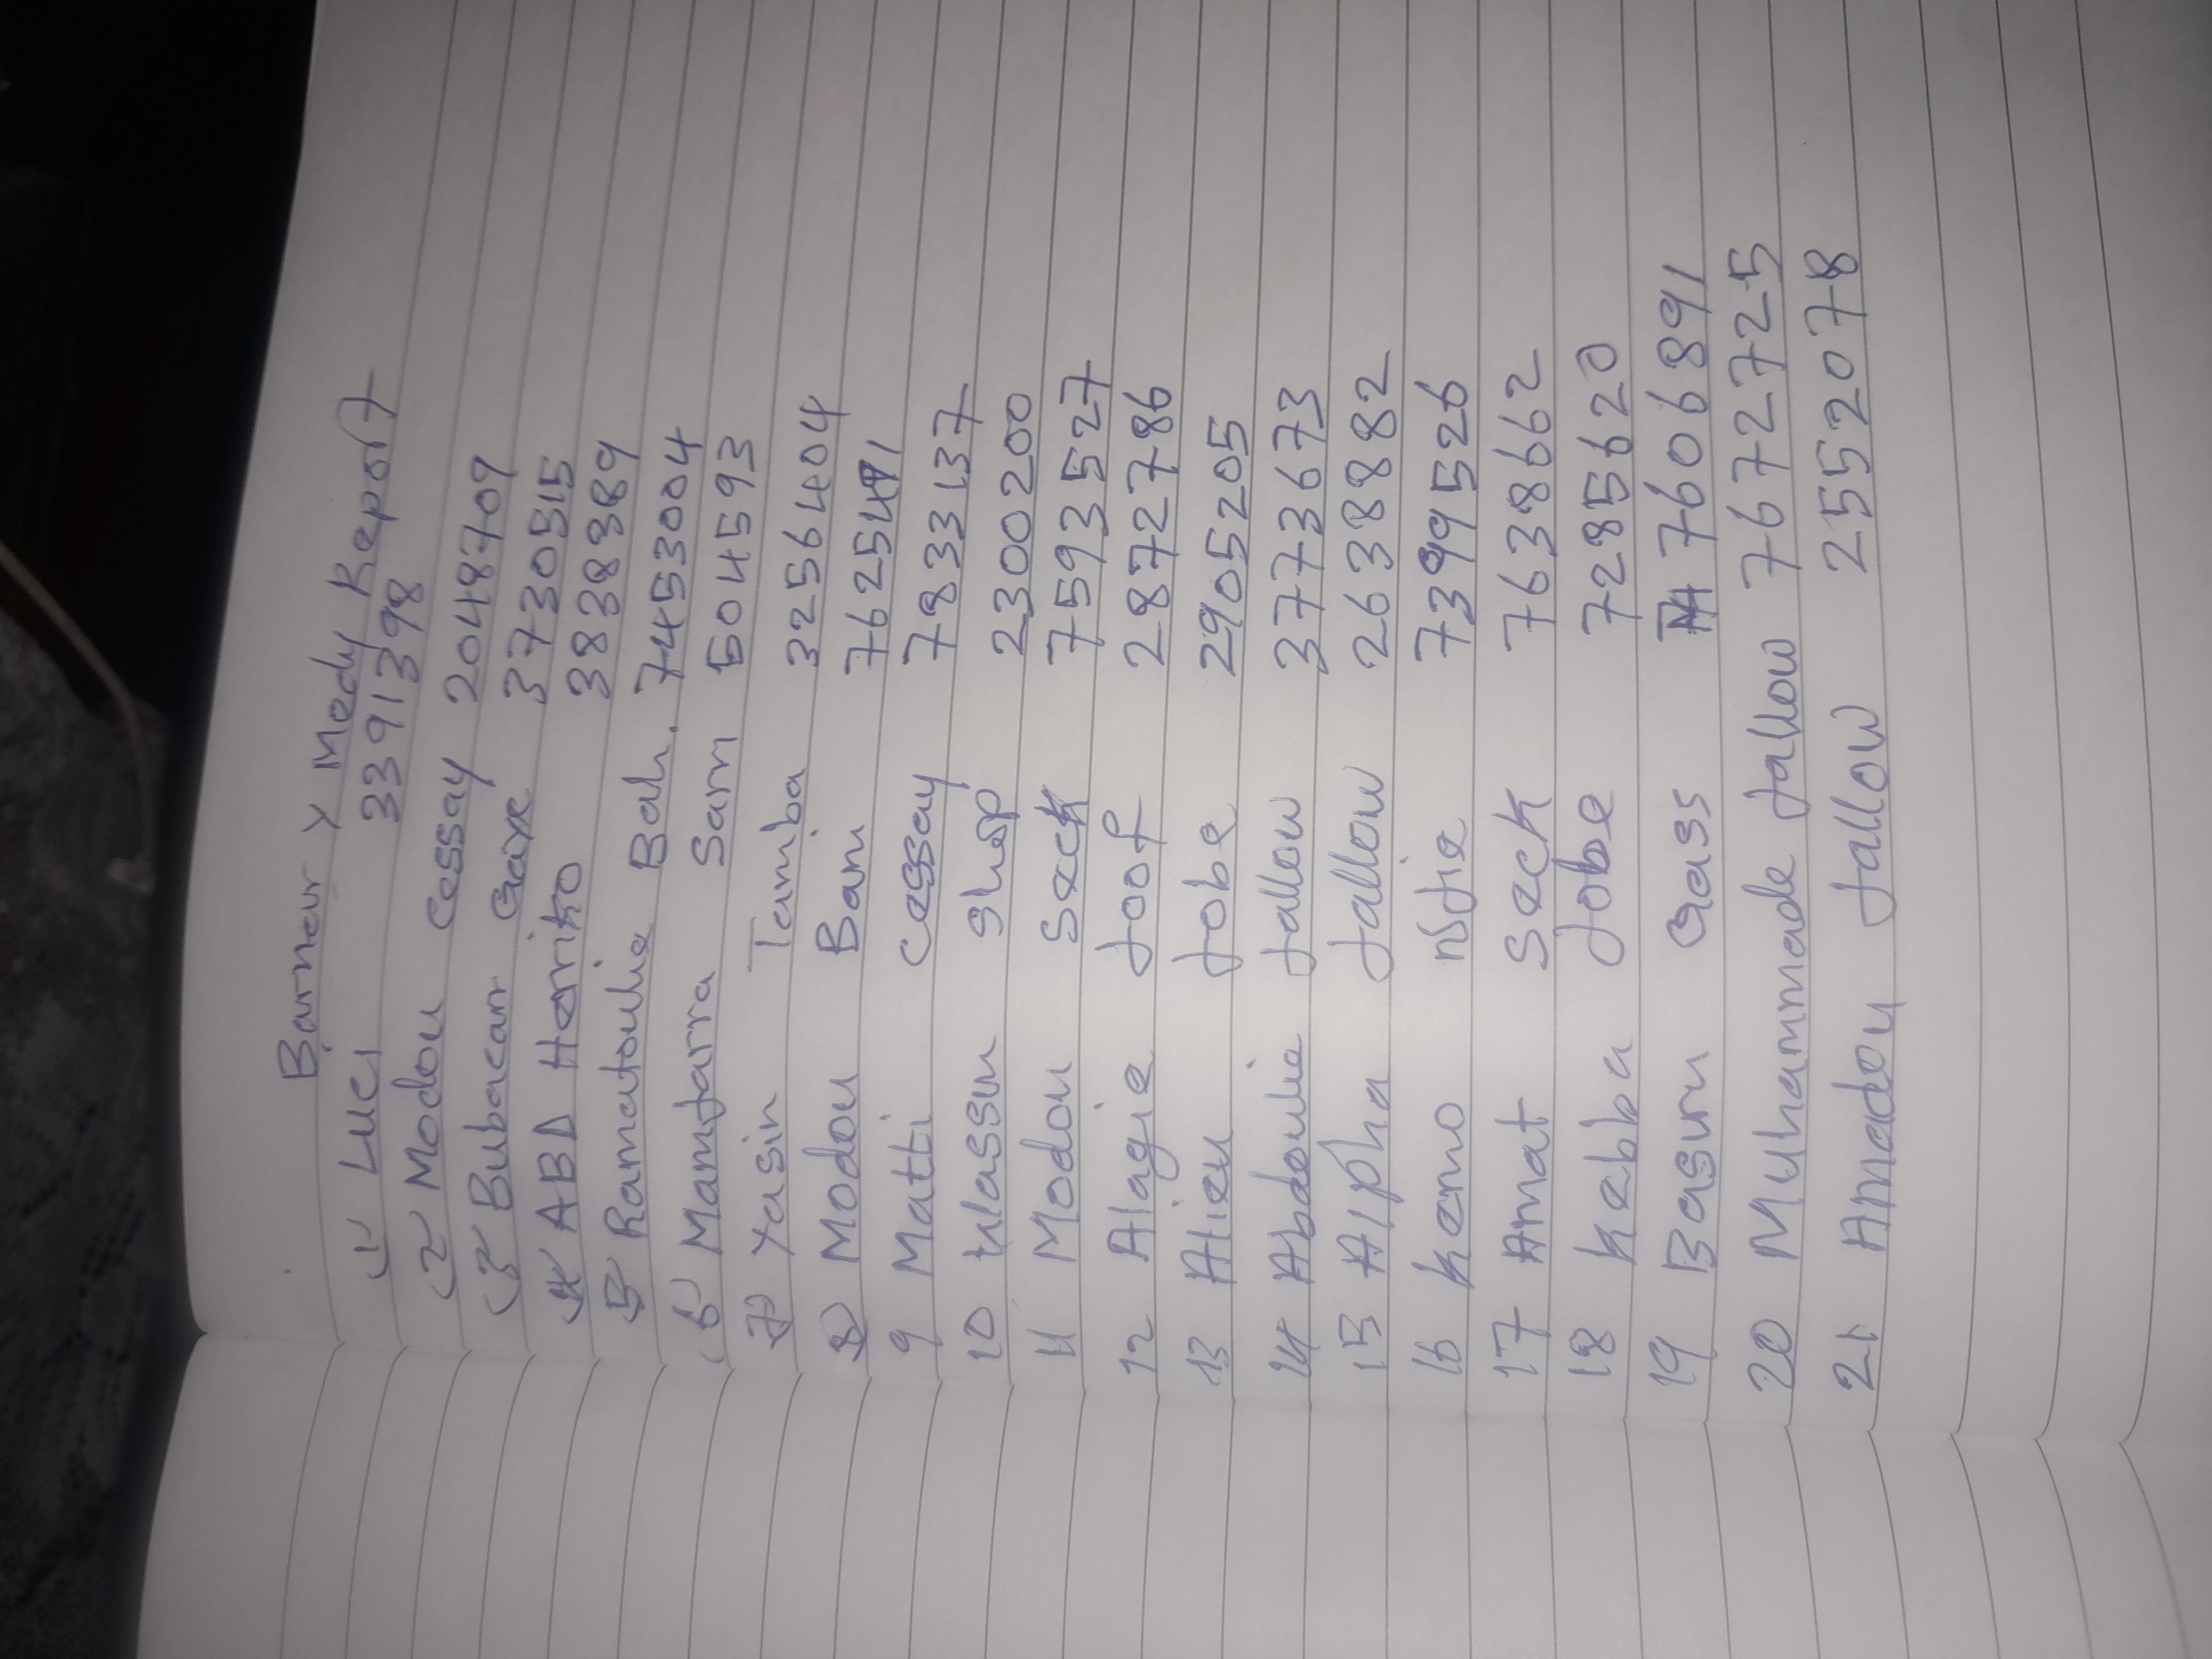 Barneur x Medy Report
1 Luci 3391398
2 Modou Cessay 2048709
3 Bubacarr Gaye 3730515
4 ABD Heriko 3838389
5 Ramatoulie Bah. 7453004
6 MamJarra Sarr 5045593
7 Yasin Tamba 3256404
8 Modou Bam
9 Matti Cessay 7833137
10 shop 2300200
11 Modou Seck 7593527
12 Alagie Joof 2872786
13 Alieu Jobe 2905205
14 Abdoulie Jallow 3773673
15 Alpha Jallow 2638882
16 Kemo NJie 7399526
17 Amat Seck 7638662
18 Kebba Jobe 7285620
19 Basiru Gass 7606891
20 Muhammade Jallow 7672725
21 Amadou Jallow 2552078